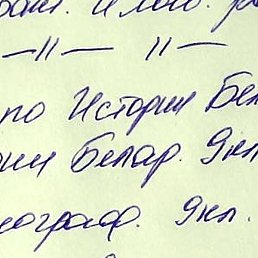 —〃— 〃—
по Истории Бел
рии Белар. 9кл
еограф. 9кл.